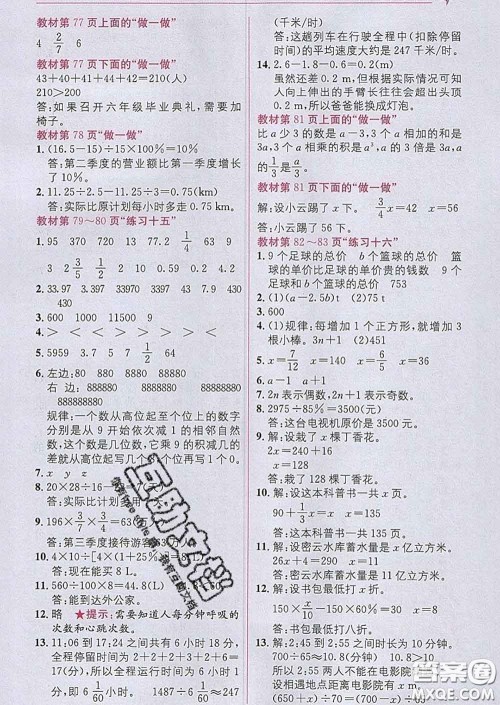 教材第77页上面的“做一做”
4 2/7 6
教材第77页下面的“做一做”
43+40+41+44+42=210(人)
210>200
答:如果召开六年级毕业典礼,需要加
椅子。
教材第78页“做一做”
1. (16.5-15)÷15×100%=10%
答:第二季度的营业额比第一季度增长
了10%。
2. 11.25÷2.5-11.25÷3=0.75(km)
答:实际比原计划每小时多走0.75 km。
教材第79~80页“练习十五”
1. 95 374 38 77 32.2 1/4 63
3 32 2/5
2. 33.97 3.397 33970 97 430
430
3. 9.7 39 700 39.7
4. > < < > > <
5. 5959 3.5 7 1/2 64
6. 左边:80 880 8880 88880
右边:888880 8888880
88888880 888888880
规律:一个数从高位起至个位的数字
分别是从9开始依次减1的相邻的几
个数,这个数是几位数,它乘9的积减几的
差就从高位起至个位连写几个8。
7. x y z
8. 20×28÷16-
答:实际比计划多用
9. 196×3/7÷3/4
答:第三季度接待游客63万人
10. 4×10÷[4×(1+25%)]=8(L)
答:现在能买8 L。
11. 560÷100×8=44.8(L)
答:能到达外公家。
12. 略 ★提示:需要知道人每分钟呼吸的
次数和心跳次数。
13. 11:06到17:24之间共有6小时18分,
全程停留时间为2+2+2+2+2+6=
16(分),所以全程行驶时间为6小时
2分,即6 1/60小时。 1487÷6 1/60≈247
(千米/时)
答:这趟列车在行驶全程中(扣除停
留时间)的平均速度大约是247千米/时。
14. 2.6-1.8-0.6=0.2(m)
虽然还差0.2 m,但根据实际情况可知
人向上伸出的手臂长往往会超出头顶
0.2 m,所以爸爸能换成灯泡。
教材第81页上面的“做一做”
比a少3的数是a-3,3个a相加的和是
3a,3个a相乘的积是a³,a的3倍是3a,a
的1/3是a/3。
教材第81页下面的“做一做”
解:设小云踢了x下。 3/4x=42 x=56
答:小云踢了56下。
教材第82~83页“练习十六”
1. 9个足球的总价 b个篮球的总价 篮
球的单价比足球的单价贵的钱数 9个
足球和b个篮球的总价 753
2. (1)(a-2.5b)t (2)5
3. 600
4. (1)规律:每增加1个正方形,就增加3
根小棒。3n+1 (2)451
5. x=7/12 x=140 x=36 x=15
6. x=1/10 x=8
7. 2n表示偶数,2n+1表示奇数。
8. 2975÷85%=3500(元)
答:这台电视机原价3500元。
9. 解:设栽了x棵丁香花。
2x+16=272
x=128
答:栽了128棵丁香花。
10. 解:设这本科普书一共x页。
答:这本科普书一共
11. 解:设密云水库蓄水量是x亿立方米。
答:密云水库蓄水量是11亿立方米。
12. 解:设书包最低打x折。
答:书包最低打八折。
13. 2:45到2:55之间的时间长为10分钟。
700÷65≈10.8(分钟) 10.8>10
所以2:55两人不能在电影院
相遇地点距离电影院有
答案圈
MXQE.COM